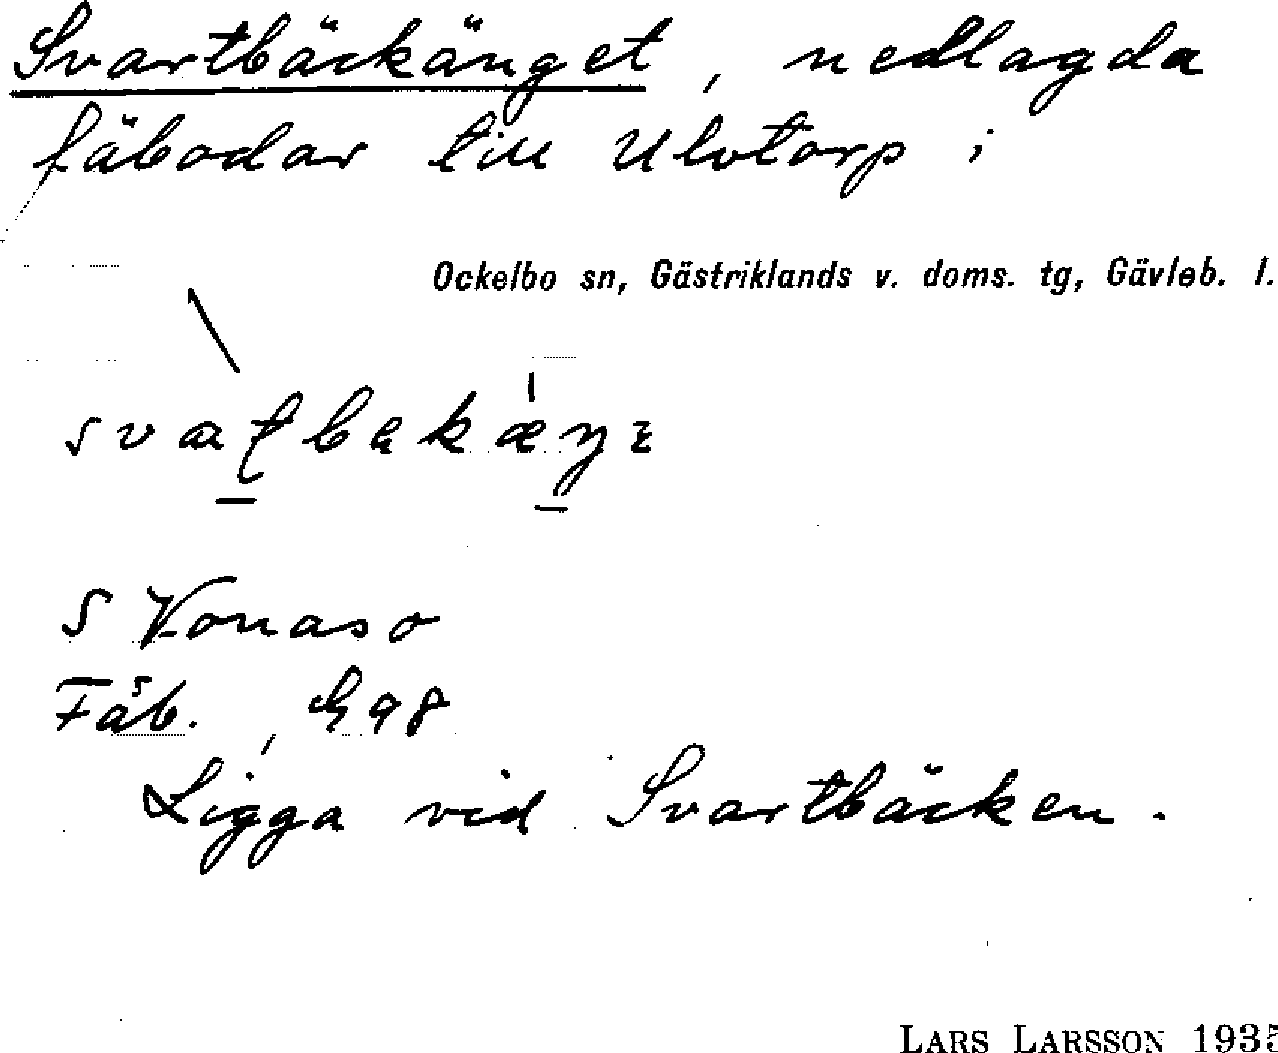 Svartbäckänget, nedlagda
fäbodar till Ulvtorp i
Ockelbo sn, Gästriklands v. doms. tg, Gävleb. l.
S Vonaso
Fäb.,
Ligga vid Svartbäcken.
LARS LARSSON 1935